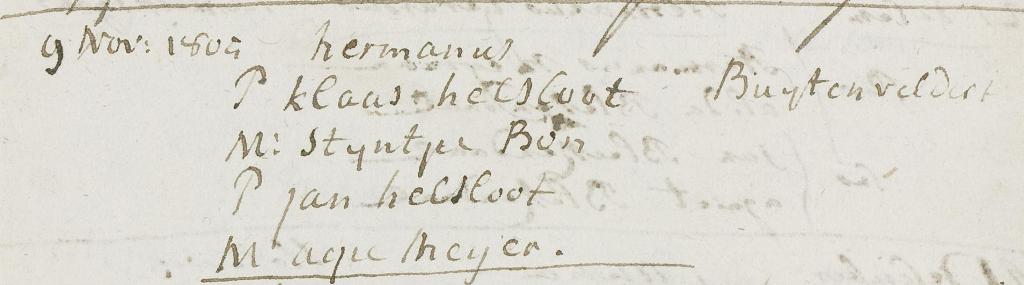 9 Nov: 1802 hermanus
P klaas helsloot Buytenveldert
M: Styntje Bon
P jan helsloot
M agie Meyer.